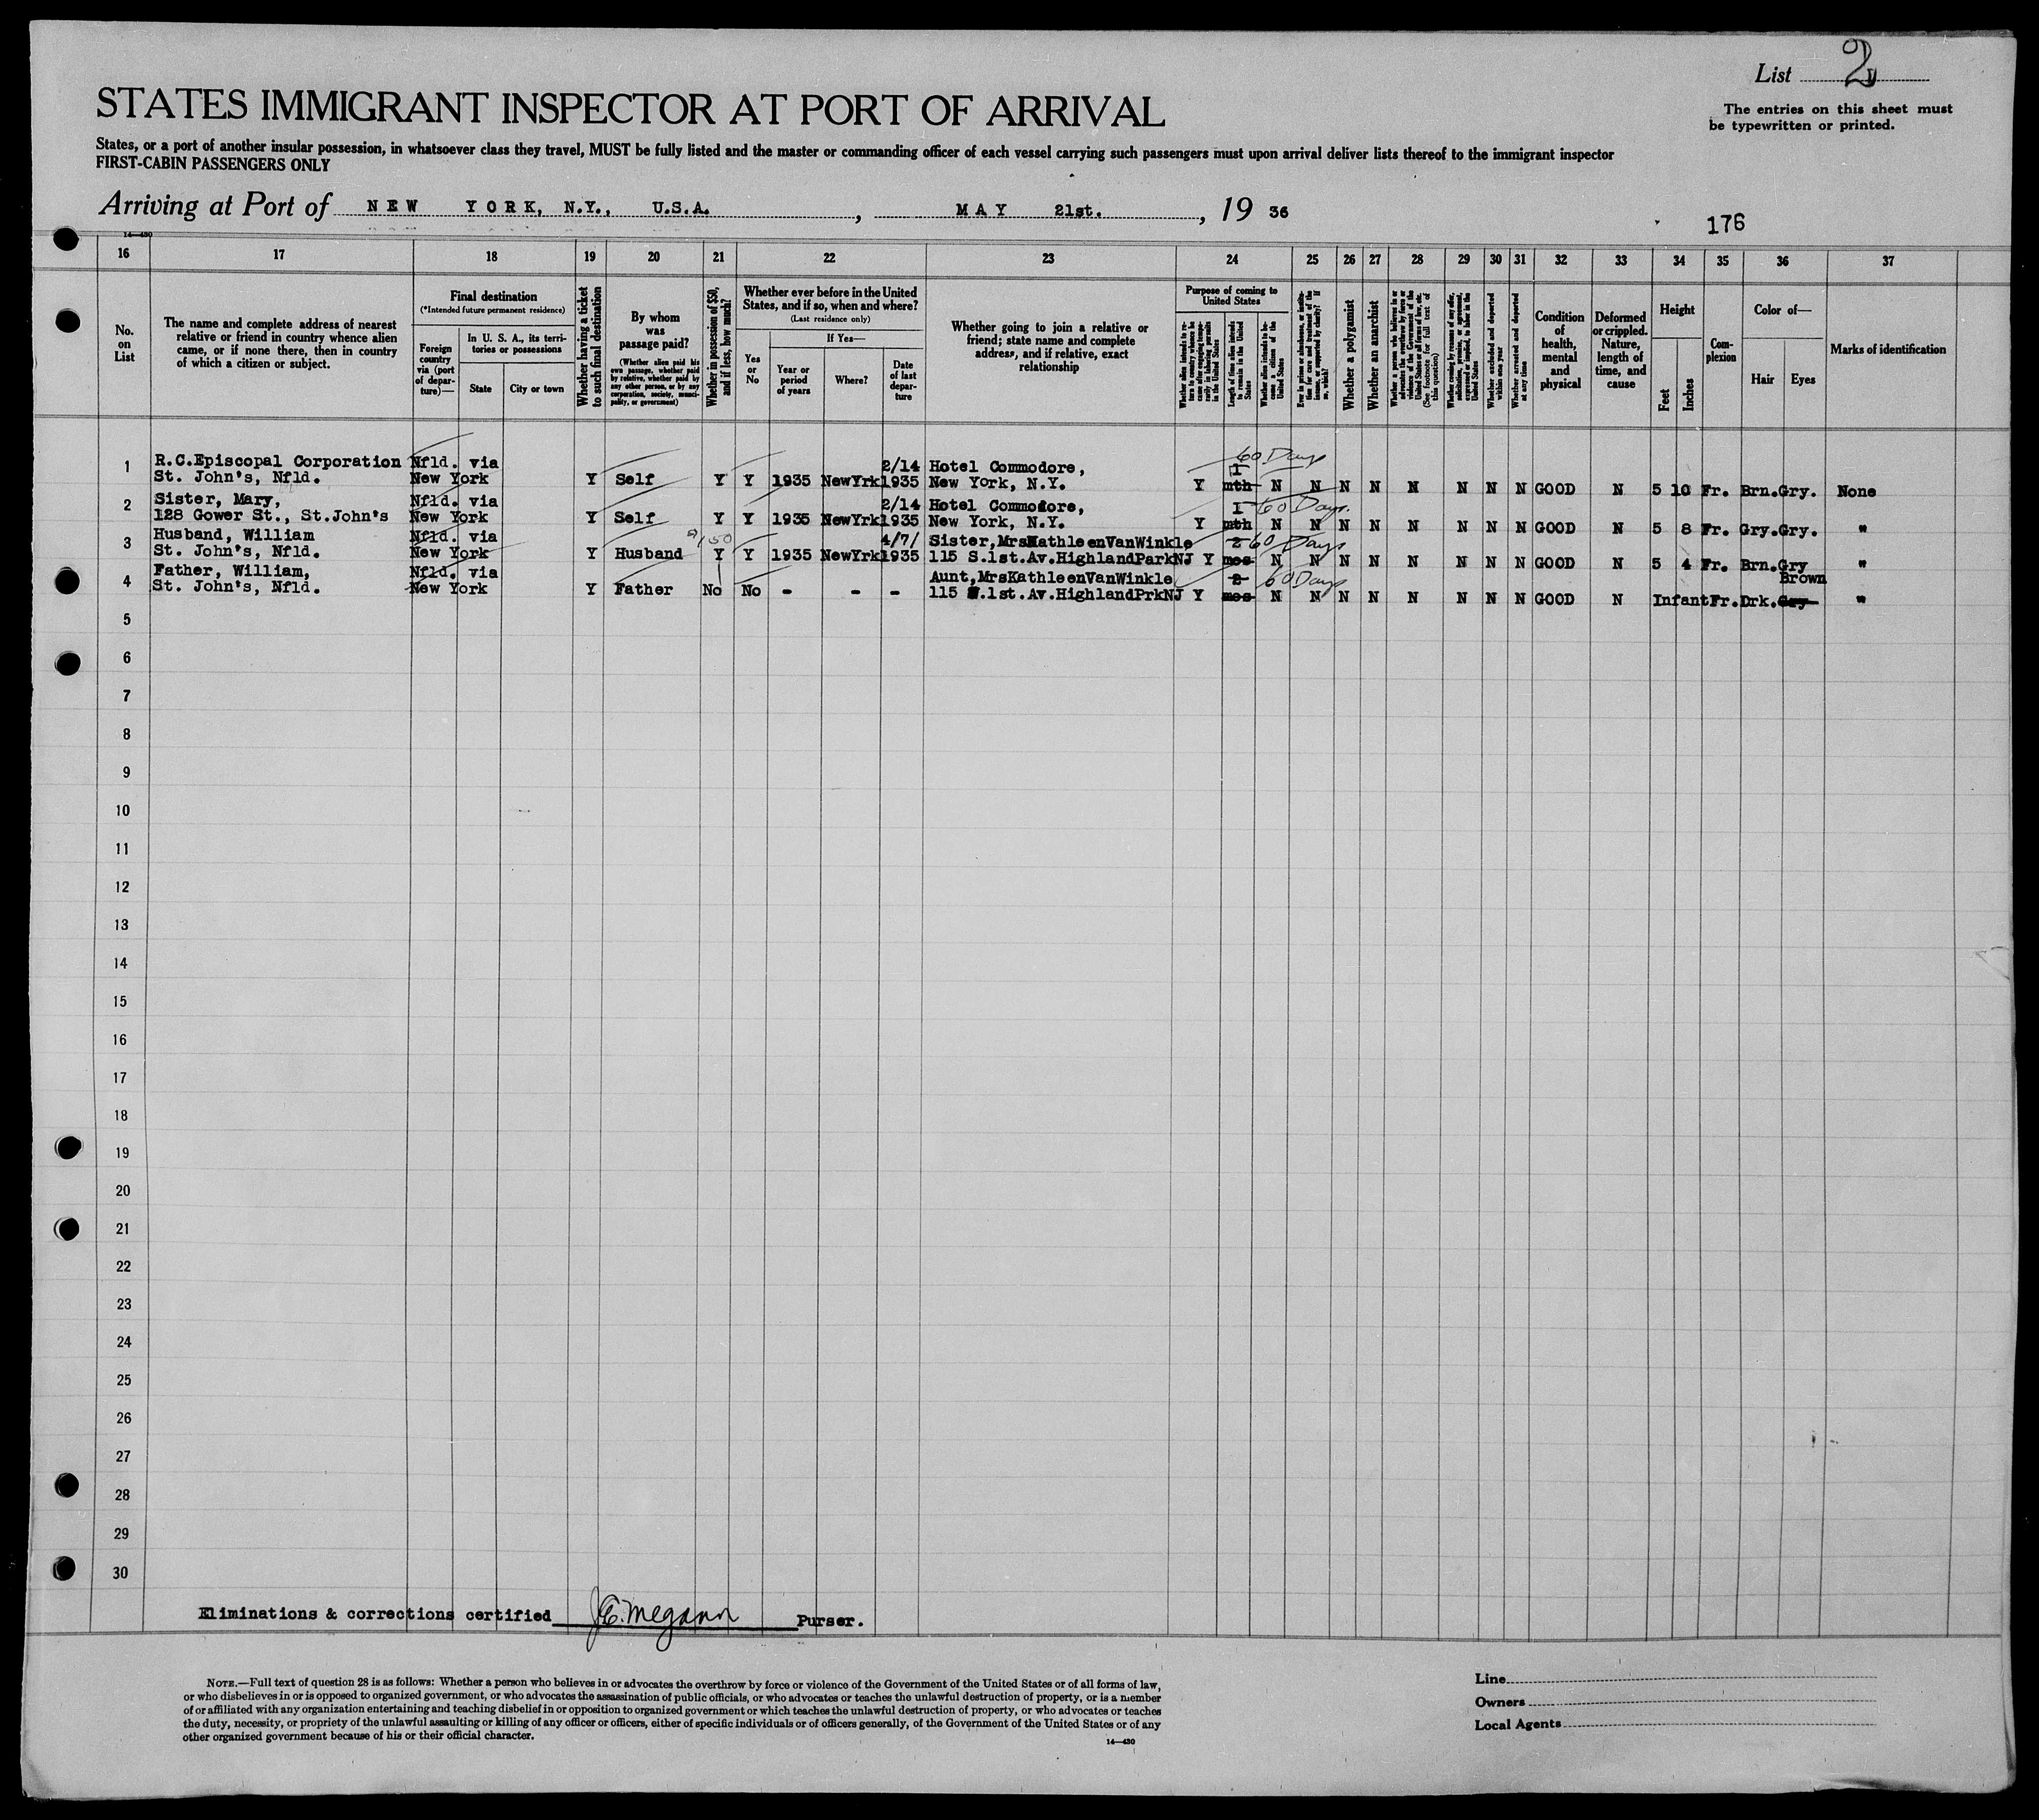 List 2
STATES IMMIGRANT INSPECTOR AT PORT OF ARRIVAL
The entries on this sheet must
be typewritten or printed.
States, or a port of another insular possession, in whatsoever class they travel, MUST be fully listed and the master or commanding officer of each vessel carrying such passengers must upon arrival deliver lists thereof to the immigrant inspector
FIRST-CABIN PASSENGERS ONLY
Arriving at Port of NEW YORK, N.Y., U.S.A. , MAY 21st. , 19 36
176
14—430
16 17 18 19 20 21 22 23 24 25 26 27 28 29 30 31 32 33 34 35 36 37
No. on List
The name and complete address of nearest relative or friend in country whence alien came, or if none there, then in country of which a citizen or subject.
Final destination
(*Intended future permanent residence)
Foreign country via (port of departure)—
In U. S. A., its territories or possessions
State
City or town
Whether having a ticket to such final destination
By whom was passage paid?
(Whether alien paid his own passage, whether paid by relative, whether paid by any other person, or by any corporation, society, municipality, or government)
Whether in possession of $50, and if less, how much?
Whether ever before in the United States, and if so, when and where?
(Last residence only)
Yes or No
If Yes—
Year or period of years
Where?
Date of last departure
Whether going to join a relative or friend; state name and complete address, and if relative, exact relationship
Purpose of coming to United States
Length of time alien intends to remain in the United States
Whether alien intends to become a citizen of the United States
Whether a polygamist
Whether an anarchist
(See footnote for full text of this question)
Whether excluded and deported within one year
Whether arrested and deported at any time
Condition of health, mental and physical
Deformed or crippled. Nature, length of time, and cause
Height
Feet
Inches
Complexion
Color of—
Hair
Eyes
Marks of identification
1 R.C.Episcopal Corporation Nfld. via 2/14 Hotel Commodore, 1 60 Days
St. John's, Nfld. New York Y Self Y Y 1935 NewYrk 1935 New York, N.Y. Y mth N N N N N N N N GOOD N 5 10 Fr. Brn. Gry. None
2 Sister, Mary, Nfld. via 2/14 Hotel Commodore, 1 60 Days.
128 Gower St., St.John's New York Y Self Y Y 1935 NewYrk 1935 New York, N.Y. Y mth N N N N N N N N GOOD N 5 8 Fr. Gry. Gry. "
3 Husband, William Nfld. via 150 4/7/ Sister,MrsKathleenVanWinkle 2 60 Days
St. John's, Nfld. New York Y Husband Y Y 1935 NewYrk 1935 115 S.1st.Av.HighlandParkNJ Y mos N N N N N N N N GOOD N 5 4 Fr. Brn. Gry "
4 Father, William, Nfld. via Aunt,MrsKathleenVanWinkle 2 60 Days Brown
St. John's, Nfld. New York Y Father No No - - - 115 S.1st.Av.HighlandPrkNJ Y mos N N N N N N N N GOOD N Infant Fr. Drk. Gry "
5
6
7
8
9
10
11
12
13
14
15
16
17
18
19
20
21
22
23
24
25
26
27
28
29
30
Eliminations & corrections certified Purser.
NOTE.—Full text of question 28 is as follows: Whether a person who believes in or advocates the overthrow by force or violence of the Government of the United States or of all forms of law,
or who disbelieves in or is opposed to organized government, or who advocates the assassination of public officials, or who advocates or teaches the unlawful destruction of property, or is a member
of or affiliated with any organization entertaining and teaching disbelief in or opposition to organized government or which teaches the unlawful destruction of property, or who advocates or teaches
the duty, necessity, or propriety of the unlawful assaulting or killing of any officer or officers, either of specific individuals or of officers generally, of the Government of the United States or of any
other organized government because of his or their official character.
14—430
Line
Owners
Local Agents